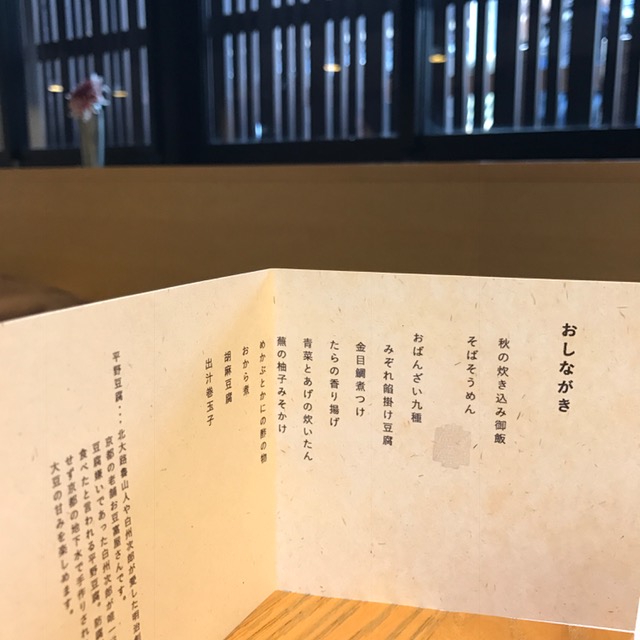 おしながき
秋の炊き込み御飯
そばそうめん
おばんざい九種
みぞれ餡掛け豆腐
金目鯛煮つけ
たらの香り揚げ
青菜とあげの炊いたん
蕪の柚子みそかけ
めかぶとかにの酢の物
おから煮
胡麻豆腐
出汁巻玉子
平野豆腐・・・北大路魯山人や白州次郎が愛した明治
京都の老舗お豆腐屋さんです。
豆腐嫌いであった白州次郎が唯一
食べたと言われる平野豆腐。防腐
せず京都の地下水で手作りされ
大豆の甘みを楽しめます。